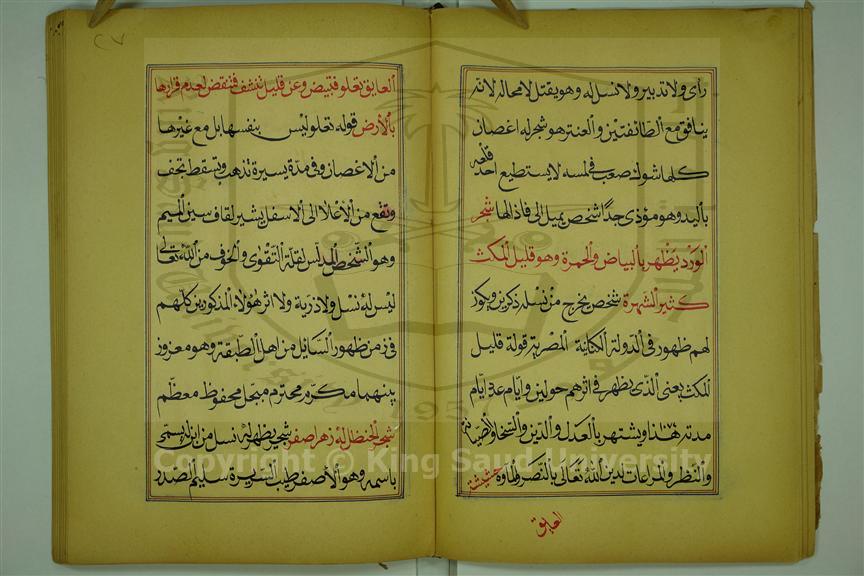 رأى ولا تدبير ولا نسل له وهو يقتل لا محاله لانه
ينافق مع الطائفتين والعنتر هو شجر له اغصان
كلها شوك صعب في لمسه لا يستطيع احد قلعه
باليد وهو مؤذى جدا شخص يميل الى فاذالها شجر
الورد يظهر بالبياض والحمرة وهو قليل المكث
كثير الشهرة شخص يخرج من نسله ذكرين ويكون
لهم ظهور في الدولة الكنانية المصرية قولة قليل
المكث يعنى الذى يظهر في اثرهم حولين وايام عدة ايام
مدته هذا ويشتهر بالعدل والدين والسخا
والنظر لدين الله تعالى بالنصر حشيشة
العايق
العايق تعلو فتبيض وعن قليل تنشف فتنقض لعدم قرارها
بالأرض قوله تعلو ليس بنفسها بل مع غيرها
من الاغصان وفي مدة يسيرة تذهب وتسقط تجف
وتقع من الأعلا الى الاسفل يشير لقاف سين الميم
وهو الشخص المدلس لقلة التقوى والخوف من الله تعالى
ليس له نسل ولا ذرية ولا اثر هؤلاء المذكورين كلهم
في زمن ظهور السايل من اهل الطبقة وهو معزوز
بينهما مكرم محترم مبجل محفوظ معظم
شجر الحنضل له زهر اصفر شجر يظهر له نسل من ابنه يسمى
باسمه وهو الأصفر طيب السريرة سليم الصدر
Copyright © King Saud University
1957